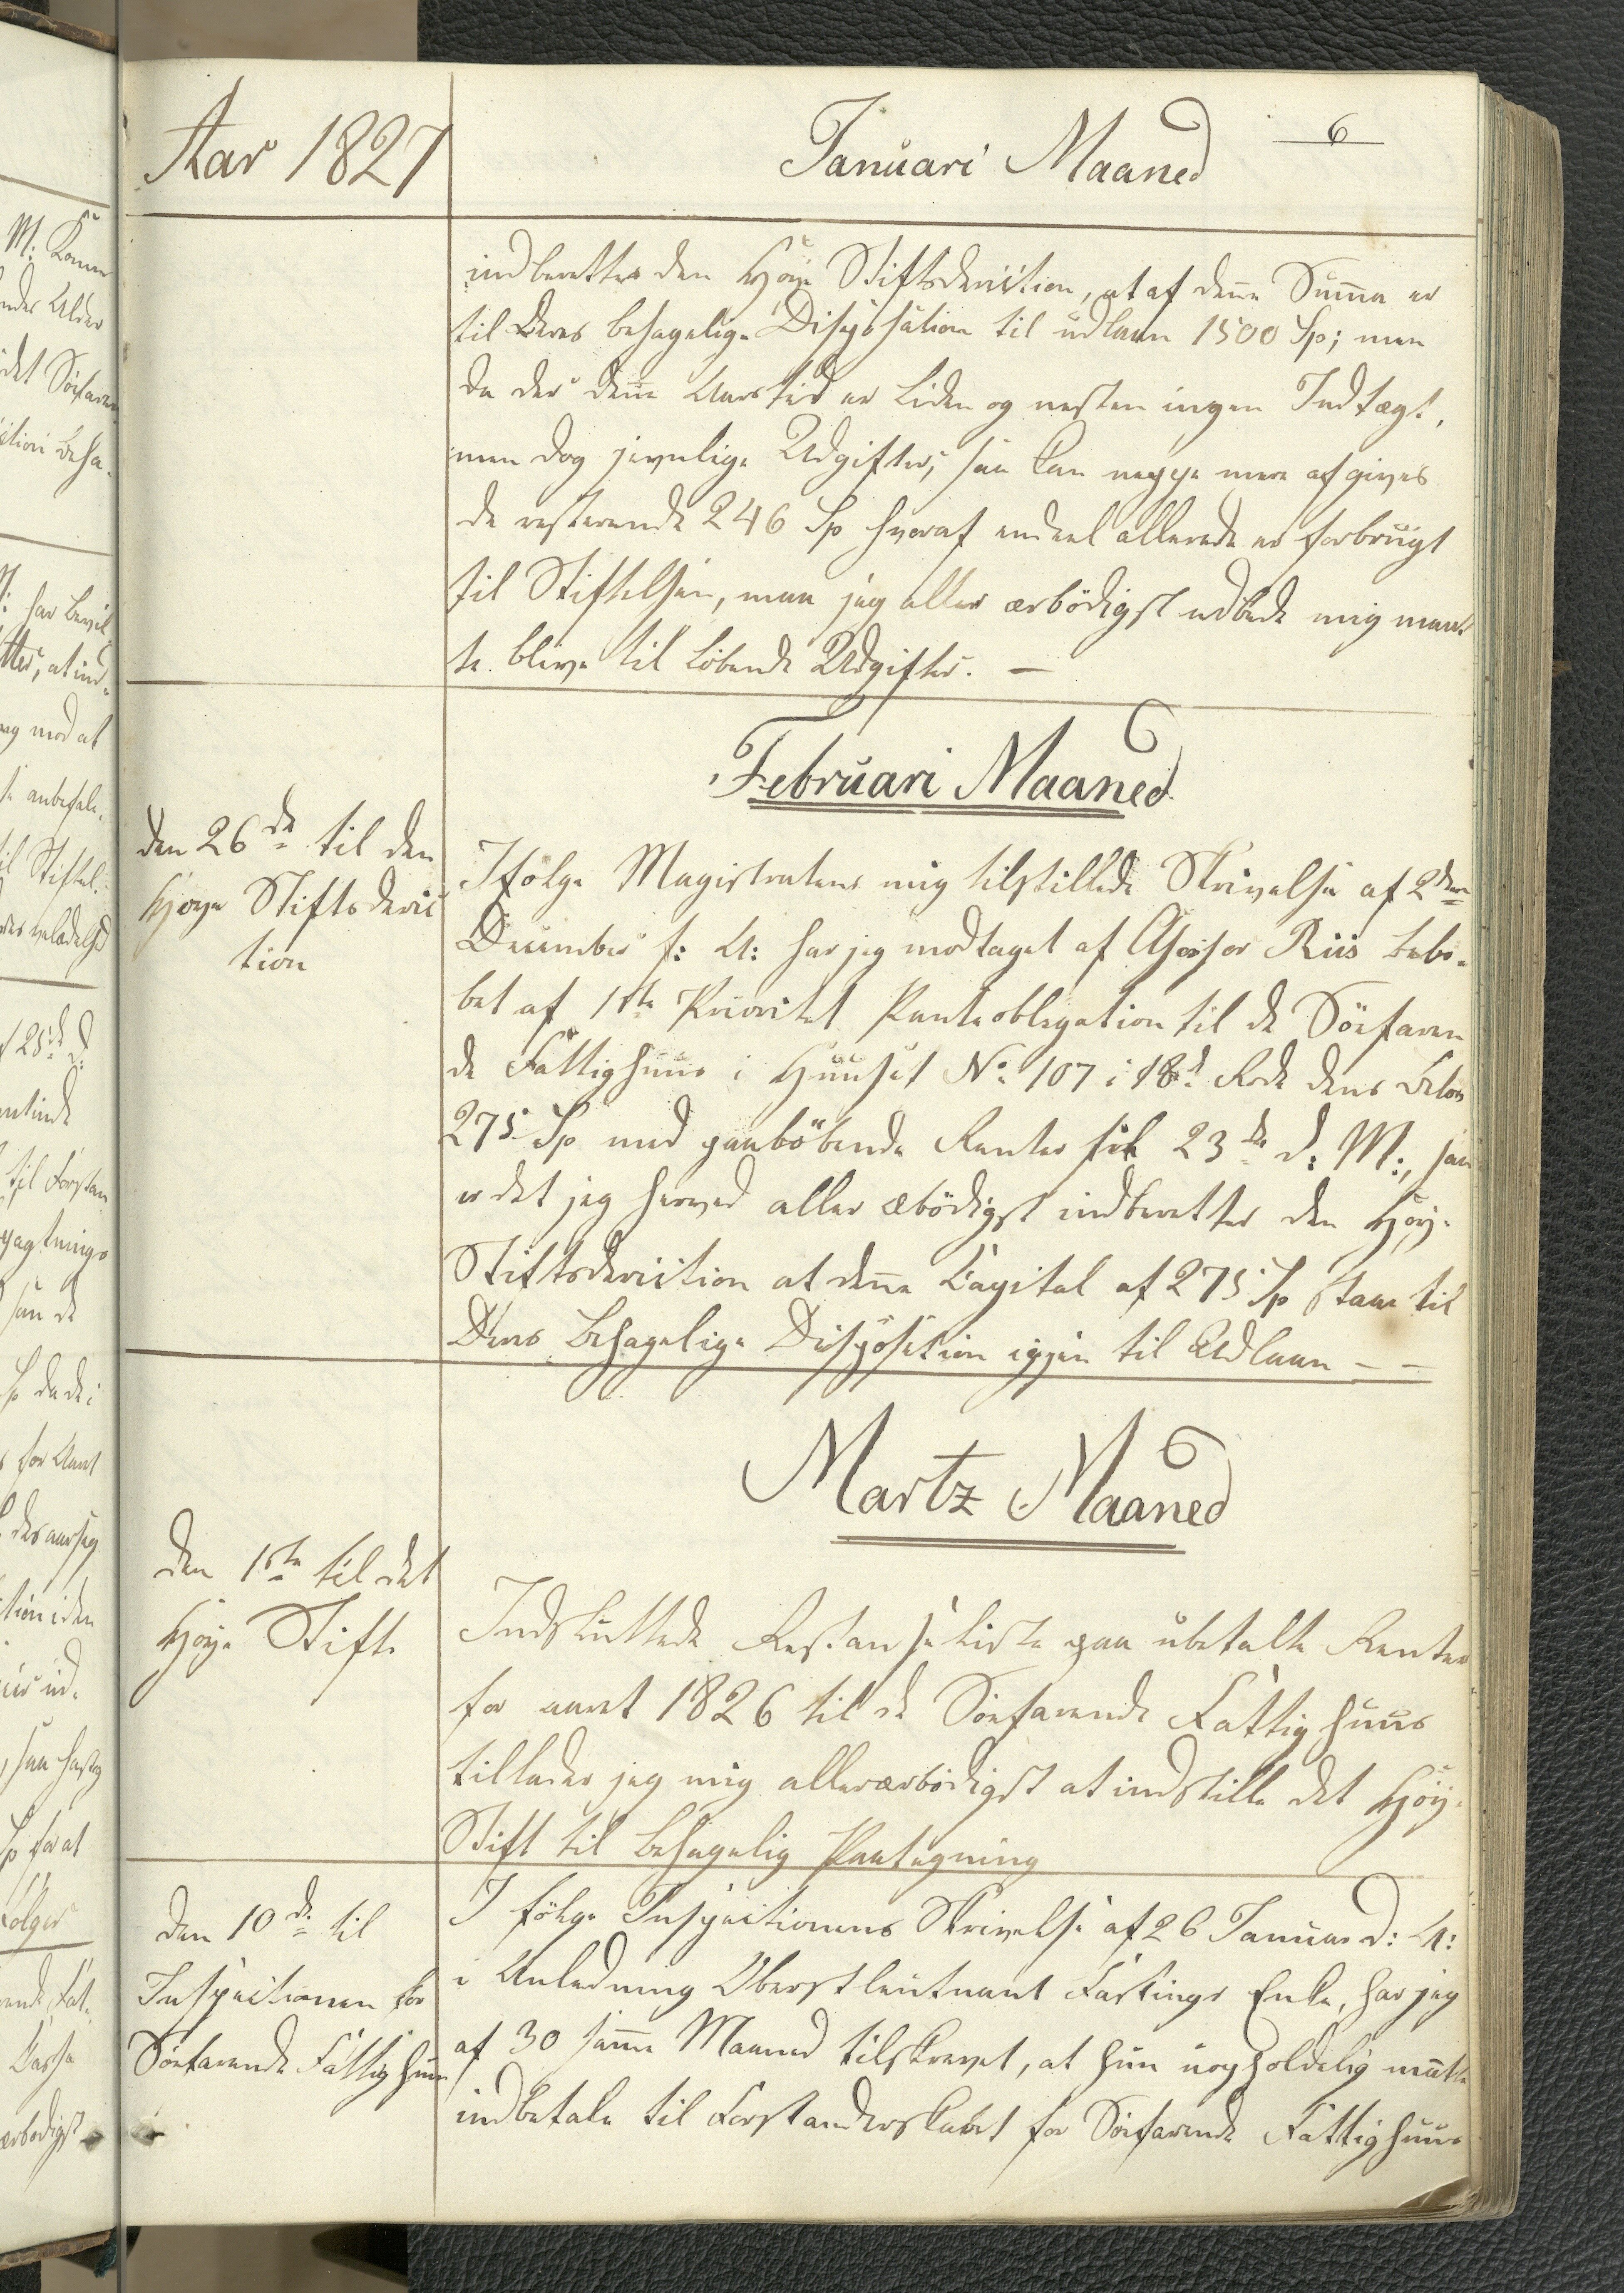 Aar 1827
Januari Maaned
6
indberetter den Høye Stiftsdirection, at af denne Summa er
til Deres behagelige Disposation til udlaan 1500 Sp; men
da der denne Aarstid er liden og nesten ingen Indtægt,
men dog jevnlige Udgifter, saa kan neppe mere afgives
de resterende 246 Sp hvoraf endeel allerede er forbrugt
til Stiftelsen, maa jeg aller ærbödigst udbede mig maat
te blive til löbende Udgifter. —
Februari Maaned
den 26de til den
Høye Stiftsdirec
tion
Ifölge Magistratens mig tilstillede Skrivelse af 2den
December f: A: har jeg modtaget af Assessor Riis belö-
bet af 1ste Prioritet Panteobligation til de Söefaren
de Fattighuus i Huuset No 107 i 18d Rode dens Belöb
275 Sp med paalöbende Renter til 23de d: M:, saa
er det jeg herved aller æbödigst indberetter den Höy-
Stiftsdirection at denne Capital af 275 Sp staar til
Deres behagelige Disposition igjen til Udlaan — —
Martz Maaned
den 1ste til det
Høye Stift.
Indsluttede Restanseliste paa ubetalte Renter
for aaret 1826 til de Söefarende Fattighuus
tillader jeg mig allerærbödigst at indstille det Höy-
Stift til behagelig Paategning
den 10de til
Inspectionen for
Söefarende Fattighuus
I fölge Inspectionens Skrivelse af 26 Januar d: A:
i Anledning Oberstleutnant Fastings Enke, har jeg
af 30 samme Maaned tilskrevet, at hun uopholdelig maatte
indbetale til Forstanderskabet for Söefarende Fattighuus